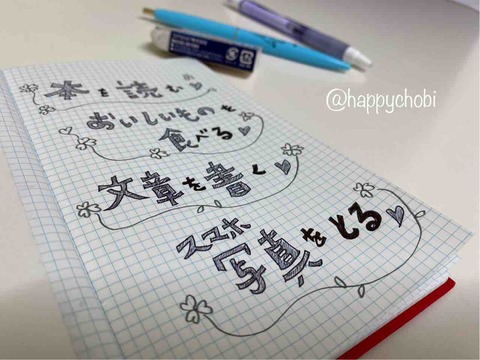 本を読む
おいしいものを
食べる
文章を書く
スマホ
写真をとる
@happychobi